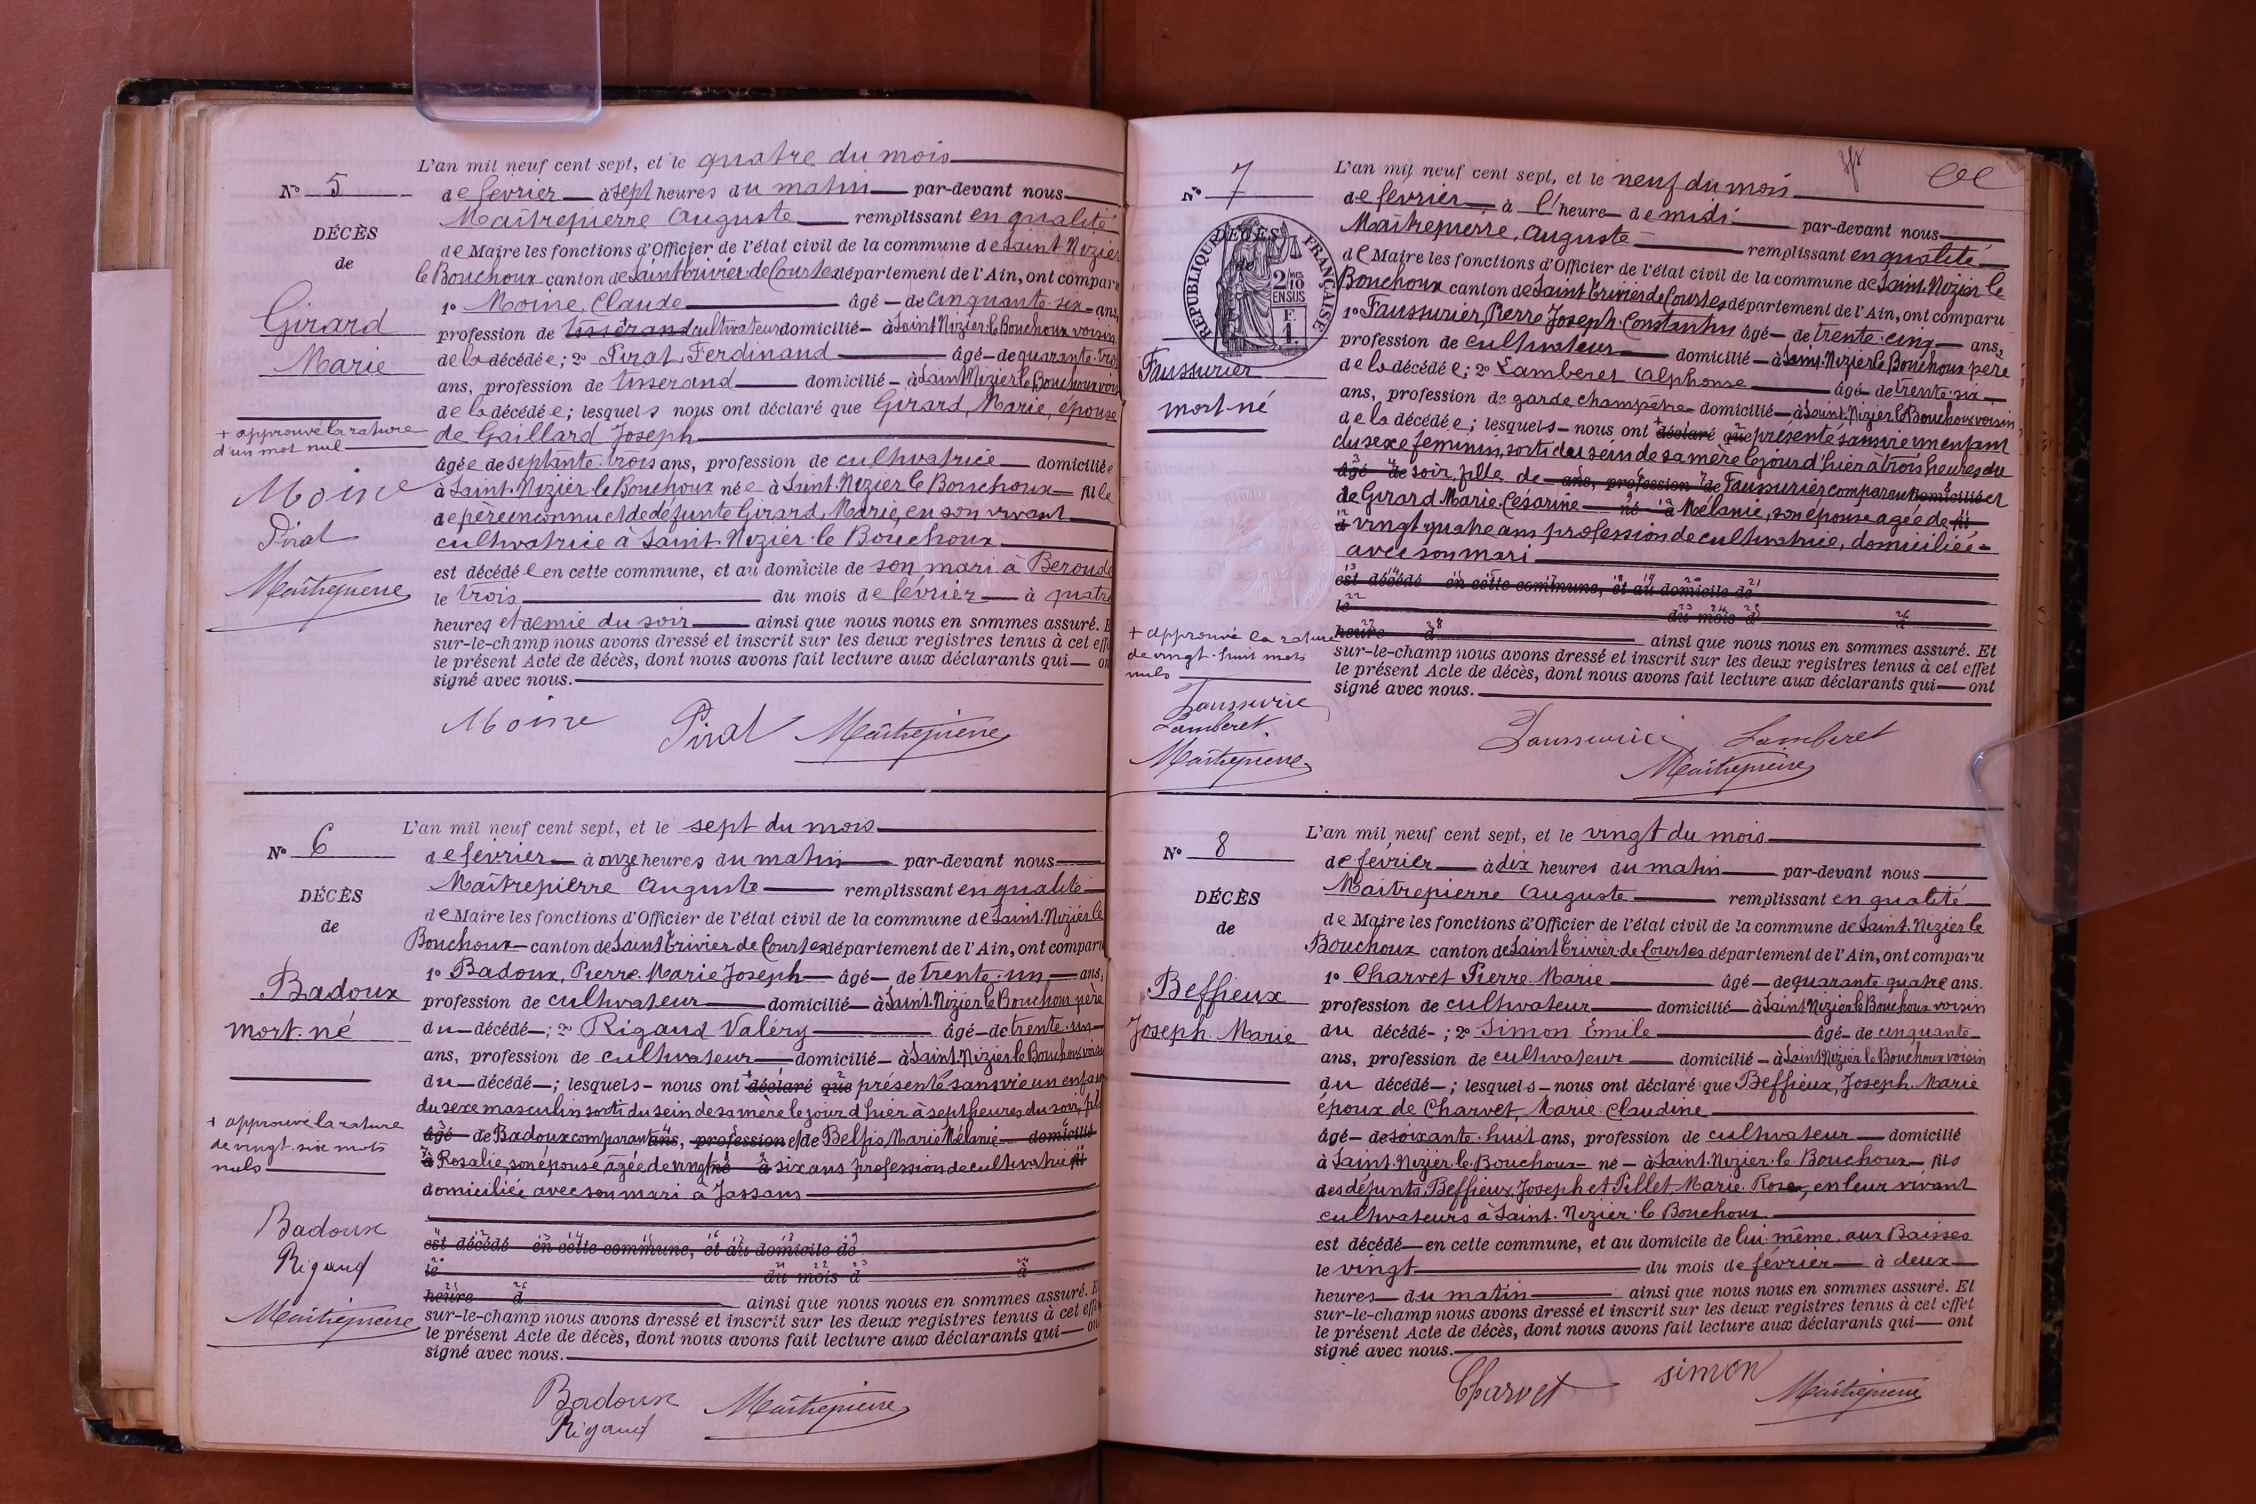 L'an mil neuf cent sept, et le quatre du mois
N° 5
de février à sept heures du matin par-devant nous
Maîtrepierre Auguste remplissant en qualité
DÉCÈS
de Maire les fonctions d'Officier de l'état civil de la commune de Saint Nizier
de
le Bouchoux canton de Saint Trivier de Courtes département de l'Ain, ont comparu
1° Moine, Claude âgé de cinquante-six ans,
Girard
profession de tisserand cultivateur domicilié à Saint Nizier le Bouchoux voisin
Marie
de la décédée; 2° Pirat, Ferdinand âgé de quarante-trois
ans, profession de tisserand domicilié à Saint Nizier le Bouchoux voisin
de la décédée; lesquels nous ont déclaré que Girard, Marie, épouse
+ approuvé la rature
d'un mot nul
de Gaillard Joseph
âgée de septante-trois ans, profession de cultivatrice domiciliée
à Saint-Nizier le Bouchoux née à Saint-Nizier le Bouchoux fille
de père inconnu et de défunte Girard, Marie, en son vivant
cultivatrice à Saint-Nizier-le Bouchoux
est décédée en cette commune, et au domicile de son mari à Beroude
le trois du mois de février à quatre
heures et demie du soir ainsi que nous nous en sommes assuré. E
sur-le-champ nous avons dressé et inscrit sur les deux registres tenus à cet effe
le présent Acte de décès, dont nous avons fait lecture aux déclarants qui on
signé avec nous.
Moine
Pirat
Maîtrepierre
Moine Pirat Maîtrepierre
L'an mil neuf cent sept, et le sept du mois
N° 6
de février à onze heures du matin par-devant nous
Maîtrepierre Auguste remplissant en qualité
DÉCÈS
de Maire les fonctions d'Officier de l'état civil de la commune de Saint-Nizier le
de
Bouchoux canton de Saint Trivier de Courtes département de l'Ain, ont comparu
1° Badoux, Pierre-Marie Joseph âgé de trente-un ans,
Badoux
profession de cultivateur domicilié à Saint-Nizier le Bouchoux père
mort-né
du décédé; 2° Rigaud Valéry âgé de trente-un
ans, profession de cultivateur domicilié à Saint-Nizier le Bouchoux voisin
du décédé; lesquels nous ont + déclaré que présenté sans vie un enfant
du sexe masculin sorti du sein de sa mère le jour d'hier à sept heures du soir, fils
+ approuvé la rature
de vingt-six mots
nuls
âgé de Badoux comparant ans, profession et de Belfis, Marie Mélanie domicilié
à Rosalie, son épouse, âgée de vingt né à six ans profession de cultivatrice fil
domiciliée avec son mari à Jassans
est décédé en cette commune, et au domicile de
le du mois d à
heure d ainsi que nous nous en sommes assuré. E
sur-le-champ nous avons dressé et inscrit sur les deux registres tenus à cet effe
le présent Acte de décès, dont nous avons fait lecture aux déclarants qui on
signé avec nous.
Badoux
Rigaud
Maîtrepierre
Badoux Maîtrepierre
Rigaud
L'an mil neuf cent sept, et le neuf du mois
N° 7
de février à l'heure de midi par-devant nous
Maîtrepierre, Auguste remplissant en qualité
de Maire les fonctions d'Officier de l'état civil de la commune de Saint-Nizier le
DÉCÈS
de
RÉPUBLIQUE FRANÇAISE
2 mes 10 EN SUS
F. 1.
Bouchoux canton de Saint Trivier de Courtes département de l'Ain, ont comparu
1° Faussurier, Pierre Joseph Constantin âgé de trente-cinq ans,
profession de cultivateur domicilié à Saint-Nizier le Bouchoux père
Faussurier
mort-né
de la décédée; 2° Lamberet Alphonse âgé de trente-six
ans, profession de garde champêtre domicilié à Saint-Nizier le Bouchoux voisin
de la décédée; lesquels nous ont + déclaré que présenté sans vie un enfant
du sexe féminin, sorti du sein de sa mère le jour d'hier à trois heures du
âgé de soir, fille de ans, profession de Faussurier comparant domicilié et
de Girard Marie, Césarine né à Mélanie, son épouse agée de fil
d vingt quatre ans profession de cultivatrice, domiciliée
avec son mari
est décédé en cette commune, et au domicile de
le du mois d à
heure d ainsi que nous nous en sommes assuré. Et
+ approuvé la rature
de vingt-huit mots
nuls
sur-le-champ nous avons dressé et inscrit sur les deux registres tenus à cet effet
le présent Acte de décès, dont nous avons fait lecture aux déclarants qui ont
signé avec nous.
Faussurier
Lamberet
Maîtrepierre
Faussurier Lamberet
Maîtrepierre
L'an mil neuf cent sept, et le vingt du mois
N° 8
de février à dix heures du matin par-devant nous
Maîtrepierre Auguste remplissant en qualité
DÉCÈS
de Maire les fonctions d'Officier de l'état civil de la commune de Saint-Nizier le
de
Bouchoux canton de Saint Trivier de Courtes département de l'Ain, ont comparu
1° Charvet Pierre-Marie âgé de quarante quatre ans.
Beffieux
profession de cultivateur domicilié à Saint Nizier le Bouchoux voisin
Joseph-Marie
du décédé; 2° Simon Emile âgé de cinquante
ans, profession de cultivateur domicilié à Saint Nizier le Bouchoux voisin
du décédé; lesquels nous ont déclaré que Beffieux, Joseph-Marie
époux de Charvet, Marie-Claudine
âgé de soixante-huit ans, profession de cultivateur domicilié
à Saint-Nizier-le Bouchoux né à Saint-Nizier-le Bouchoux fils
des défunts Beffieux, Joseph et Pillet, Marie-Rose, en leur vivant
cultivateurs à Saint-Nizier-le Bouchoux
est décédé en cette commune, et au domicile de lui-même, aux Baisses
le vingt du mois de février à deux
heures du matin ainsi que nous nous en sommes assuré. Et
sur-le-champ nous avons dressé et inscrit sur les deux registres tenus à cet effet
le présent Acte de décès, dont nous avons fait lecture aux déclarants qui ont
signé avec nous.
Charvet simon Maîtrepierre